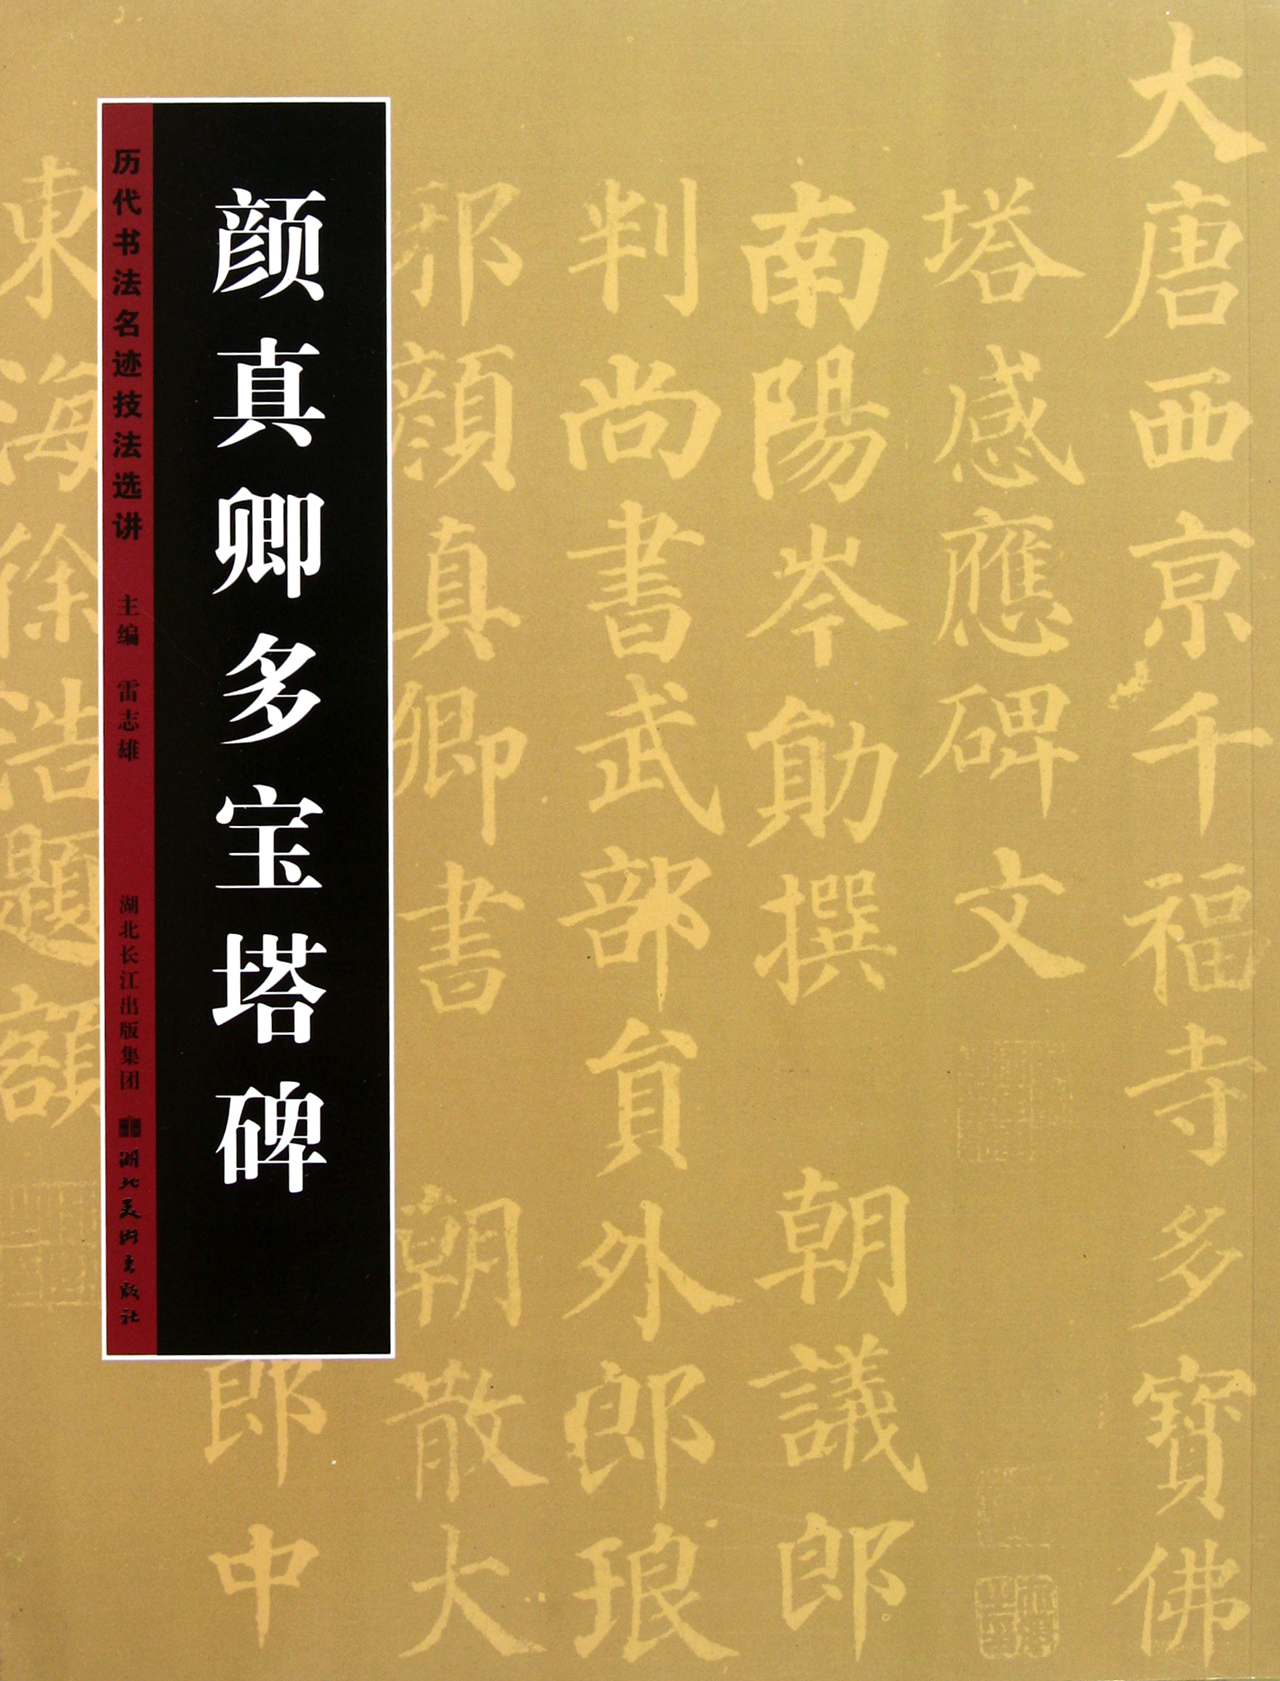 颜真卿多宝塔碑
历代书法名迹技法选讲 主编 雷志雄 湖北长江出版集团 湖北美术出版社
大唐西京千福寺多寶佛
塔感應碑文
南陽岑勛撰 朝議郎
判尚書武部員外郎琅
邪顏真卿書 朝散大
郎中
東海徐浩題額